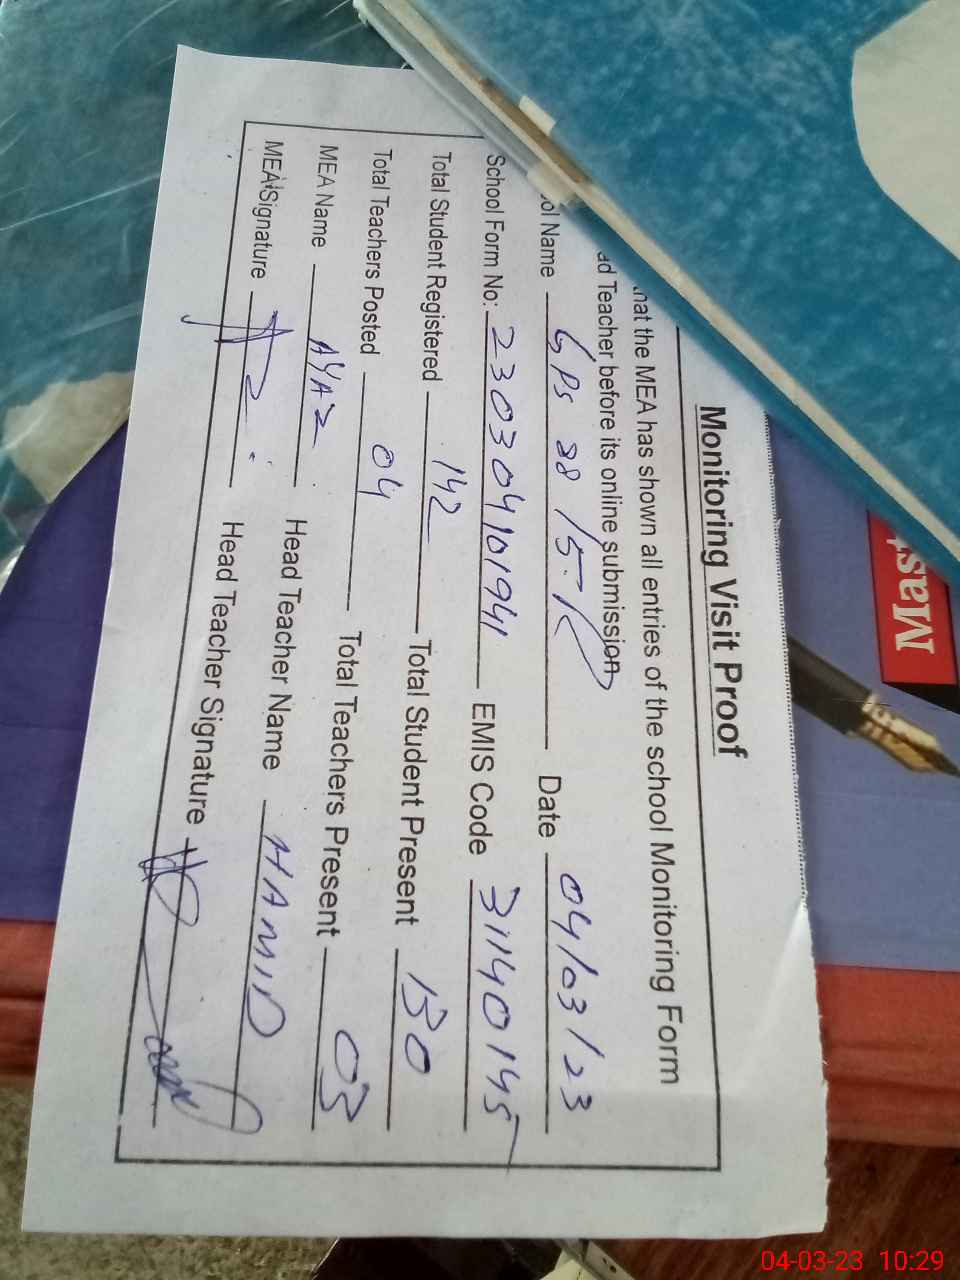 Monitoring Visit Proof
that the MEA has shown all entries of the school Monitoring Form
ad Teacher before its online submission
ol Name GPS 88 15-L Date 04/03/23
School Form No: 230304101941 EMIS Code 31140145
Total Student Registered 142 Total Student Present 130
Total Teachers Posted 04 Total Teachers Present 03
MEA Name AYAZ Head Teacher Name HAMID
MEA Signature Head Teacher Signature
Mas
04-03-23 10:29